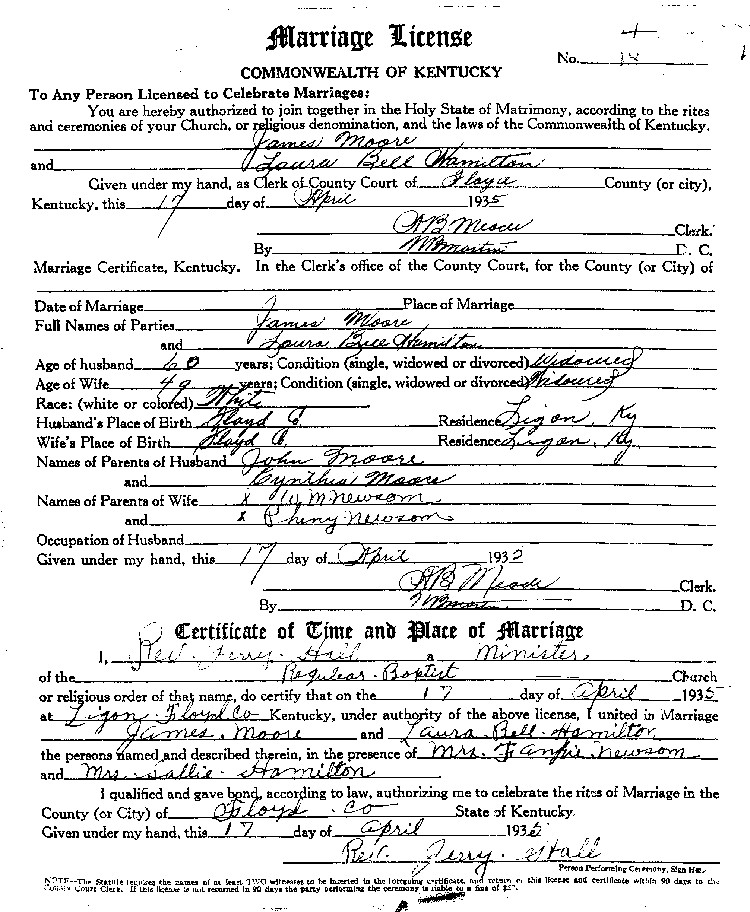 Marriage License
4
No. 18
COMMONWEALTH OF KENTUCKY
To Any Person Licensed to Celebrate Marriages:
You are hereby authorized to join together in the Holy State of Matrimony, according to the rites
and ceremonies of your Church, or religious denomination, and the laws of the Commonwealth of Kentucky.
James Moore
and Laura Bell Hamilton
Given under my hand, as Clerk of County Court of Floyd County (or city),
Kentucky, this 17 day of April 1935
AB Meade Clerk.
By D. C.
Marriage Certificate, Kentucky. In the Clerk's office of the County Court, for the County (or City) of
Date of Marriage Place of Marriage
Full Names of Parties James Moore
and Laura Bell Hamilton
Age of husband 60 years; Condition (single, widowed or divorced) Widowed
Age of Wife 49 years; Condition (single, widowed or divorced) Widowed
Race: (white or colored) White
Husband's Place of Birth Floyd C. Residence Ligon, Ky
Wife's Place of Birth Floyd C. Residence Ligon, Ky.
Names of Parents of Husband John Moore
and Cynthia Moore
Names of Parents of Wife x Wm Newsom
and x Phiny Newsom
Occupation of Husband
Given under my hand, this 17 day of April 1935
AB Meade Clerk.
By D. C.
Certificate of Time and Place of Marriage
I, Rev. Jerry Hall a Minister
of the Regular Baptist Church
or religious order of that name, do certify that on the 17 day of April 1935
at Ligon Floyd Co Kentucky, under authority of the above license, I united in Marriage
James Moore and Laura Bell Hamilton
the persons named and described therein, in the presence of Mrs. Newsom
and Mrs. Sallie Hamilton
I qualified and gave bond, according to law, authorizing me to celebrate the rites of Marriage in the
County (or City) of Floyd Co State of Kentucky.
Given under my hand, this 17 day of April 1935
Rev. Jerry Hall
Person Performing Ceremony, Sign Here.
NOTE—The Statute requires the names of at least TWO witnesses to be inserted in the foregoing certificate, and return of this license and certificate within 90 days to the
County Court Clerk. If this license is not returned in 90 days the party performing the ceremony is liable to a fine of